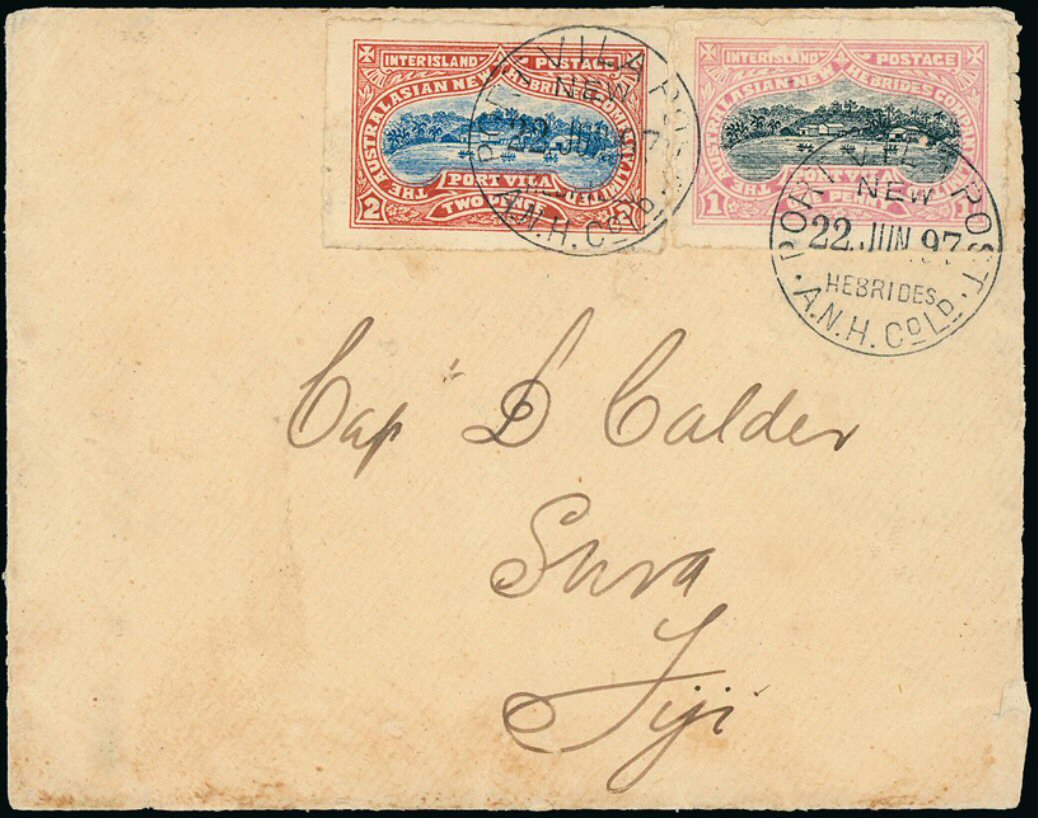 INTERISLAND POSTAGE
THE AUSTRALASIAN NEW HEBRIDES COMPANY, LIMITED
PORT VILA
2 TWO PENCE 2
INTERISLAND POSTAGE
THE AUSTRALASIAN NEW HEBRIDES COMPANY LIMITED
PORT VILA
1 PENNY 1
PORT VILA POST.
NEW
22 JUN 97
HEBRIDES
A.N.H. Co Ld.
PORT VILA POST.
NEW
22 JUN 97
HEBRIDES
A.N.H. Co Ld.
Cap D Calder
Suva
Fiji